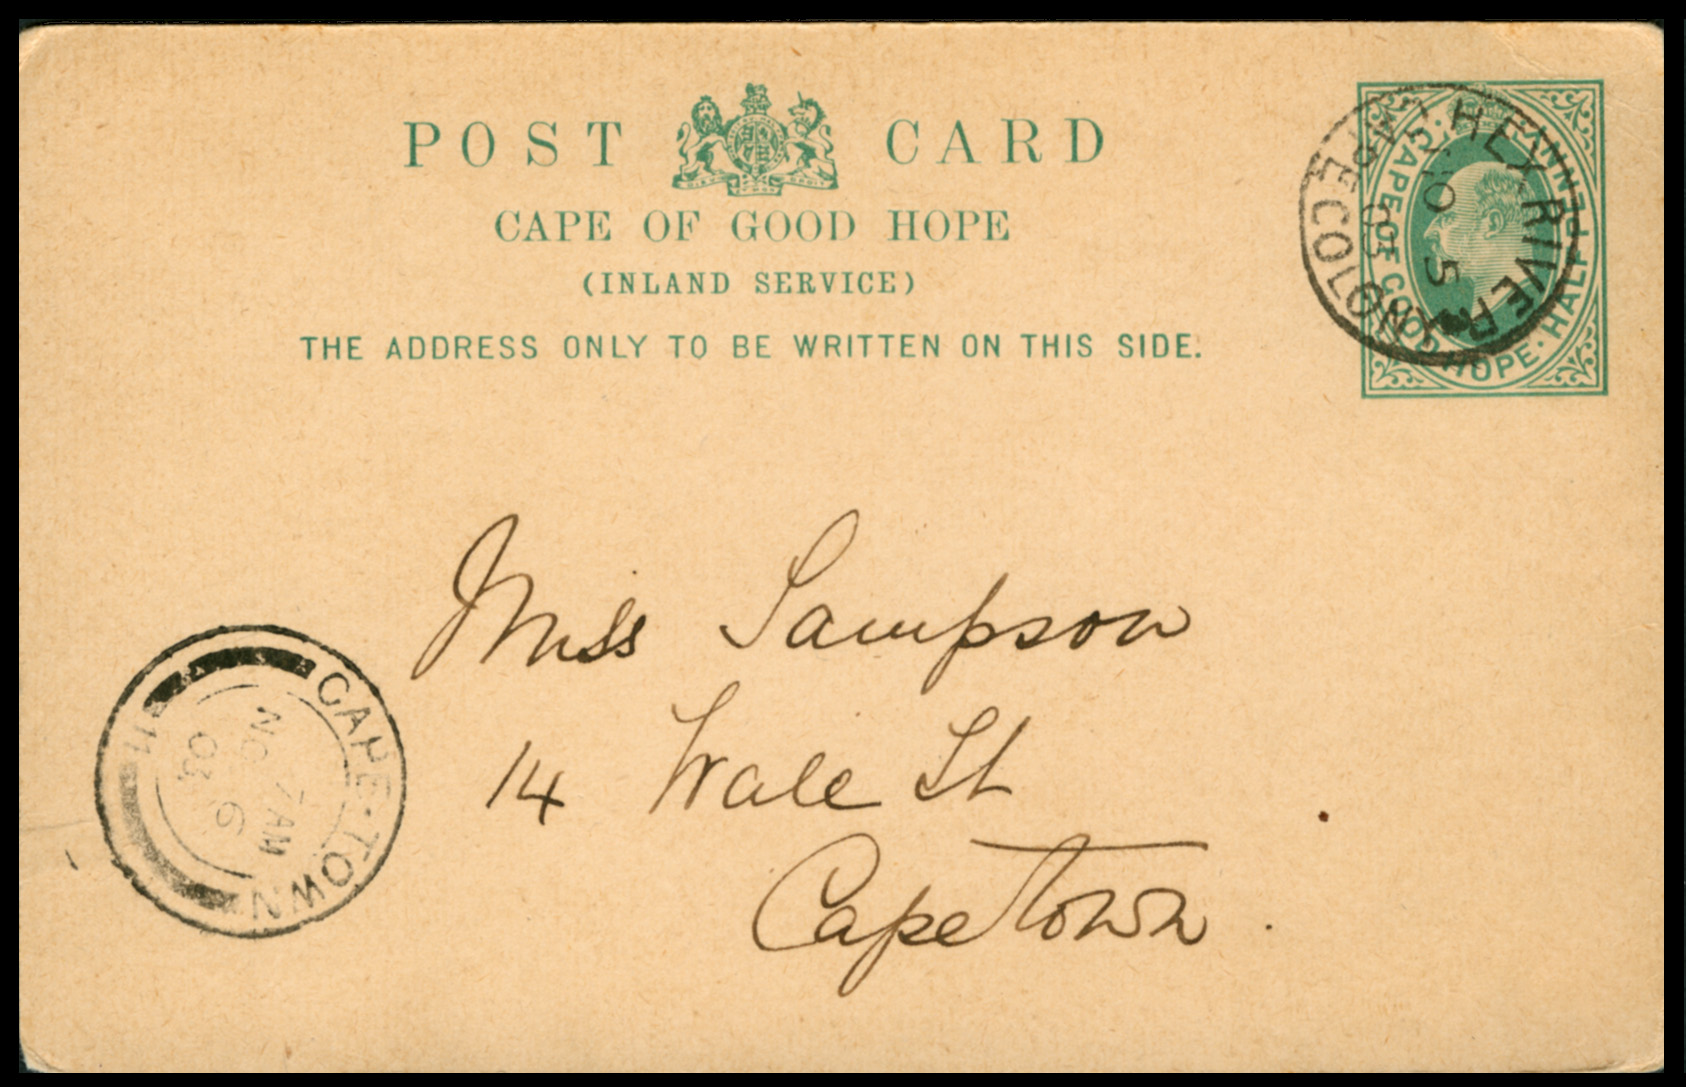 POST CARD
CAPE OF GOOD HOPE
(INLAND SERVICE)
THE ADDRESS ONLY TO BE WRITTEN ON THIS SIDE.
CAPE OF GOOD HOPE · HALF PENNY
HEX RIVER
CAPE COLONY
NO 5
03
Miss Sampson
14 Wale St
Capetown.
CAPE·TOWN
7 AM
NO 6
03